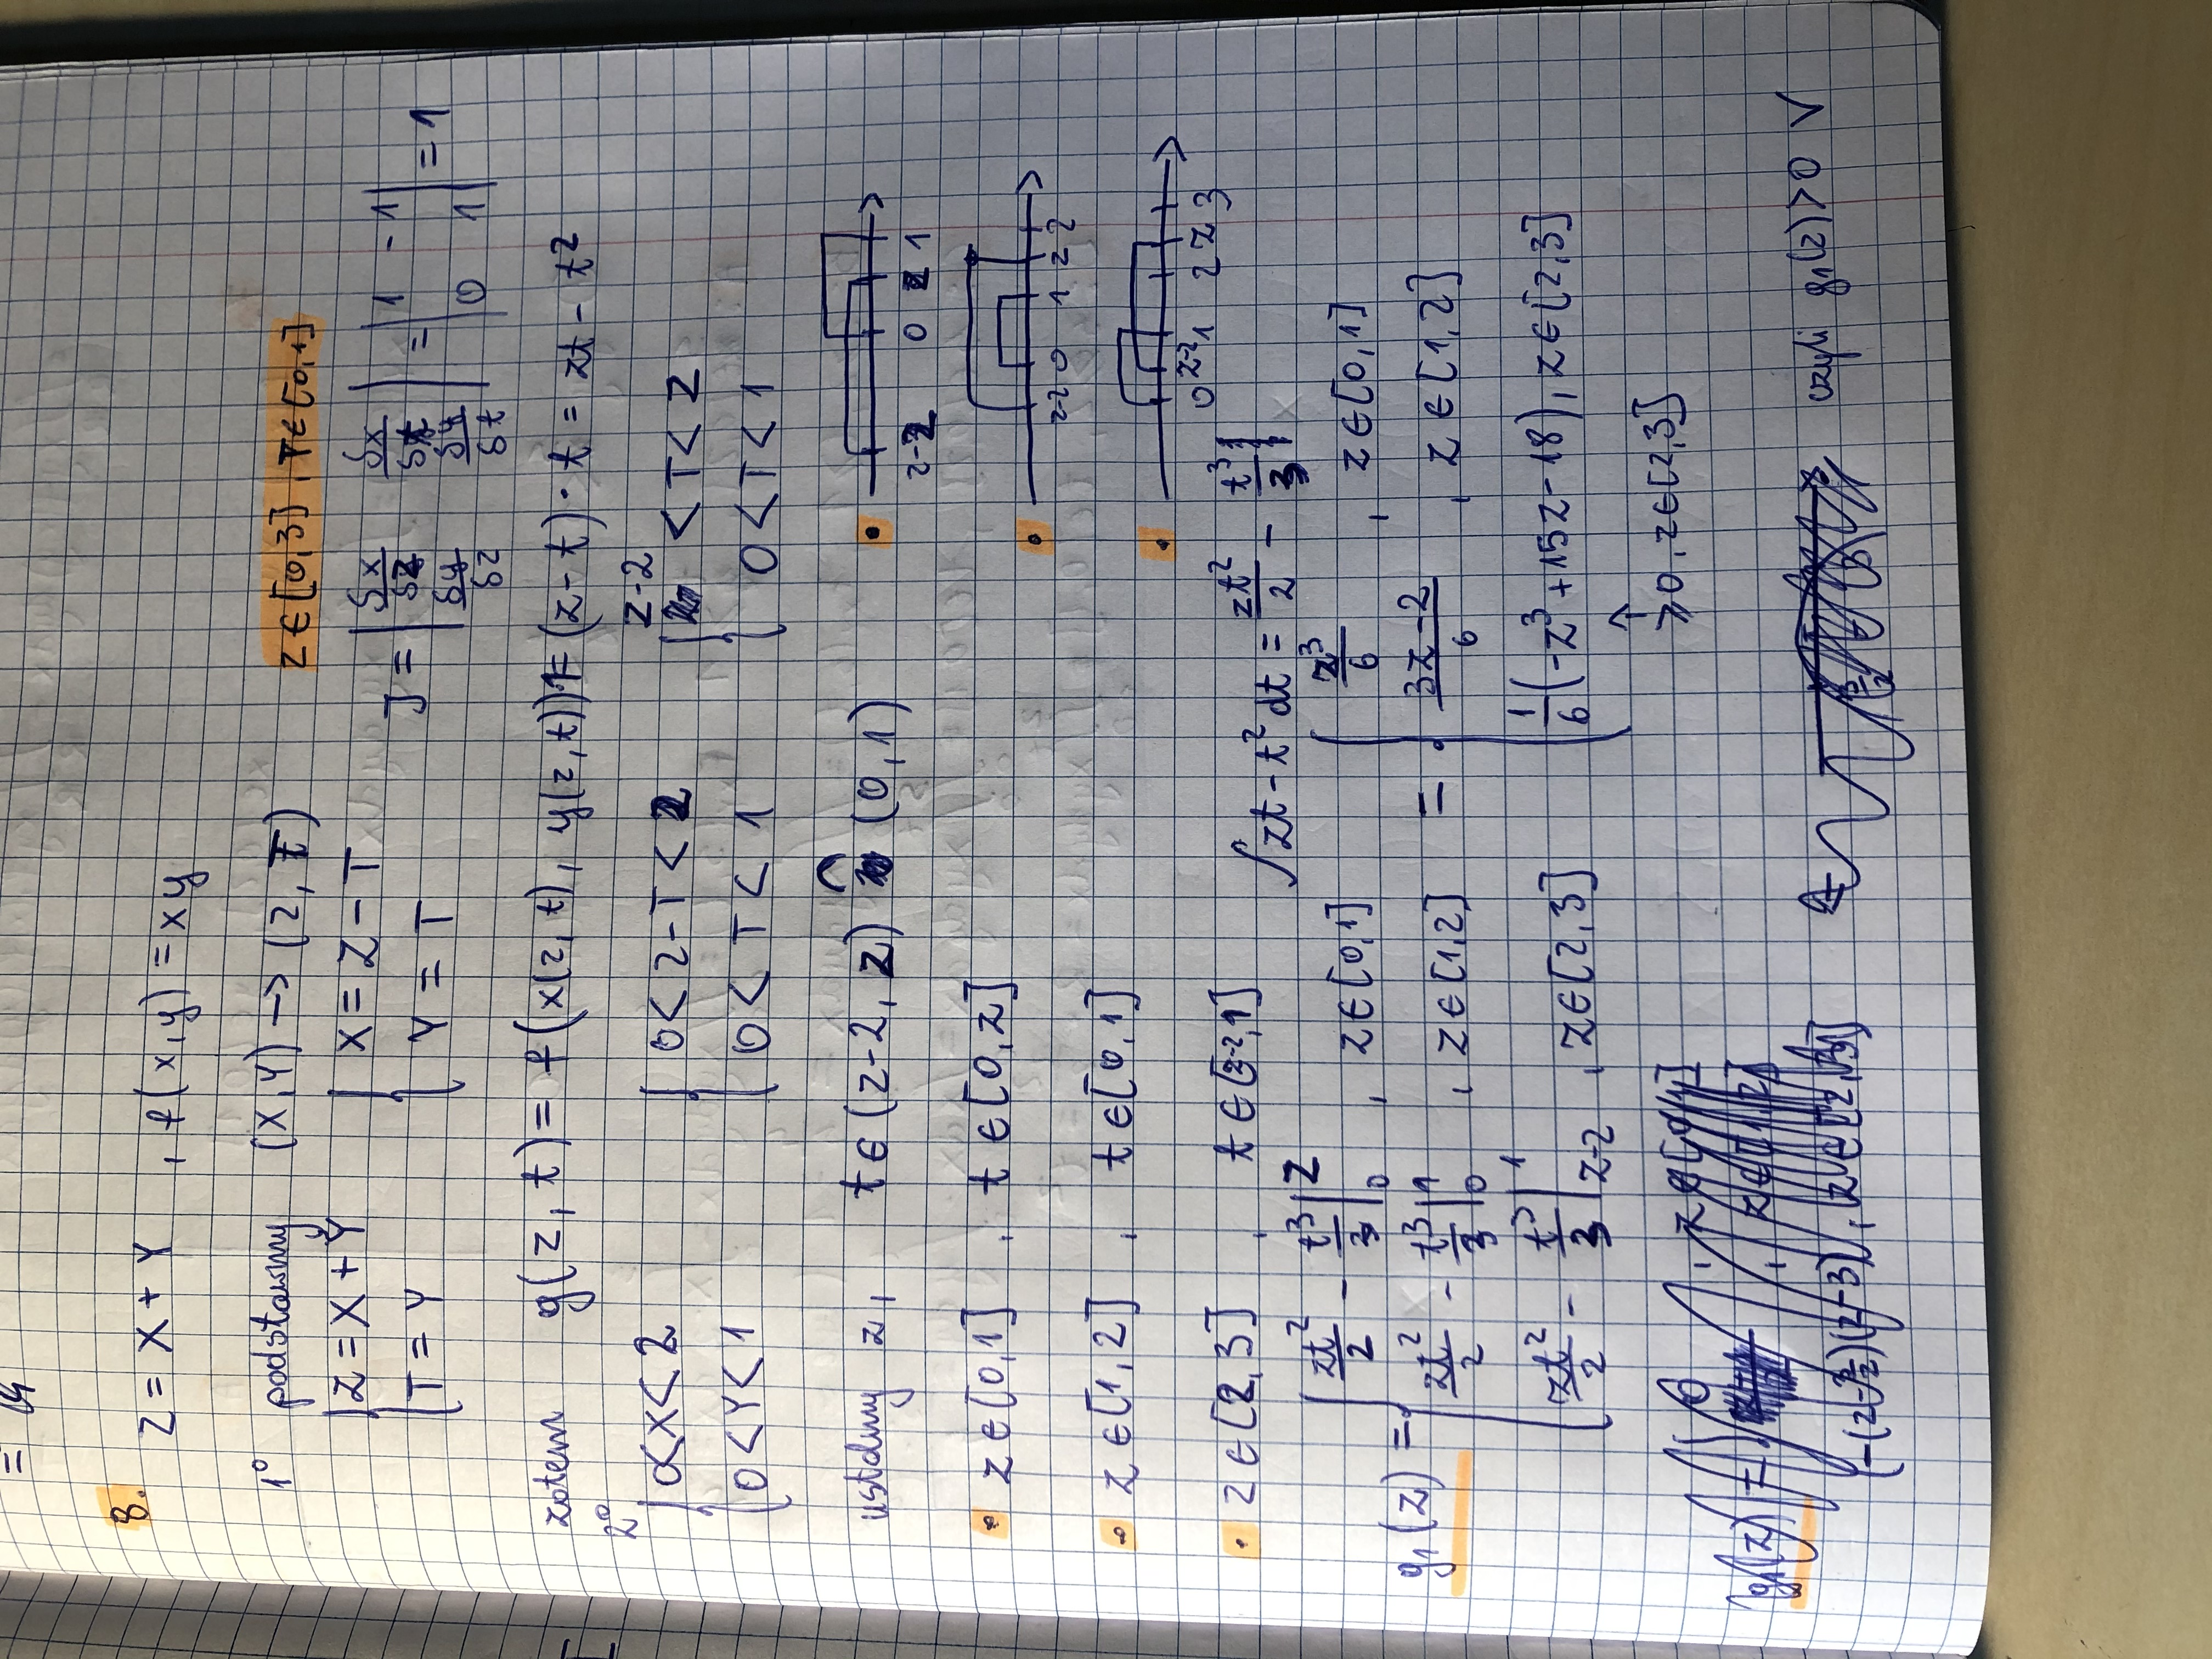 =
8.
Z = X + Y , f(x,y) = xy
1° podstawmy (X,Y) → (Z,T) Z ∈ [0,3] , T ∈ [0,1]
{ Z = X + Y { X = Z - T J = | δx/δz δx/δt | = | 1 -1 | = 1
{ T = Y { Y = T | δy/δz δy/δt | | 0 1 |
zatem g(z,t) = f(x(z,t), y(z,t))·1 = (z-t)·t = zt - t²
2°
{ 0<X<2 { 0<Z-T<2 { Z-2 < T < Z
{ 0<Y<1 { 0<T<1 { 0<T<1
ustalmy z, t ∈ (z-2, z) ∩ (0,1) • z-2 0 z 1
• z ∈ [0,1] , t ∈ [0,z] • z-2 0 1 z 2
• z ∈ [1,2] , t ∈ [0,1] • 0 z-2 1 2 z 3
• z ∈ [2,3] , t ∈ [z-2,1] ∫zt - t² dt = zt²/2 - t³/3 |
g₁(z) = { zt²/2 - t³/3 |₀^z , z ∈ [0,1] = { z³/6 , z ∈ [0,1]
{ zt²/2 - t³/3 |₀^1 , z ∈ [1,2] { (3z-2)/6 , z ∈ [1,2]
{ zt²/2 - t³/3 |_{z-2}^1 , z ∈ [2,3] { 1/6 (-z³ + 15z - 18), z ∈ [2,3]
↑
≥0, z ∈ [2,3]
czyli g₁(z) > 0 √